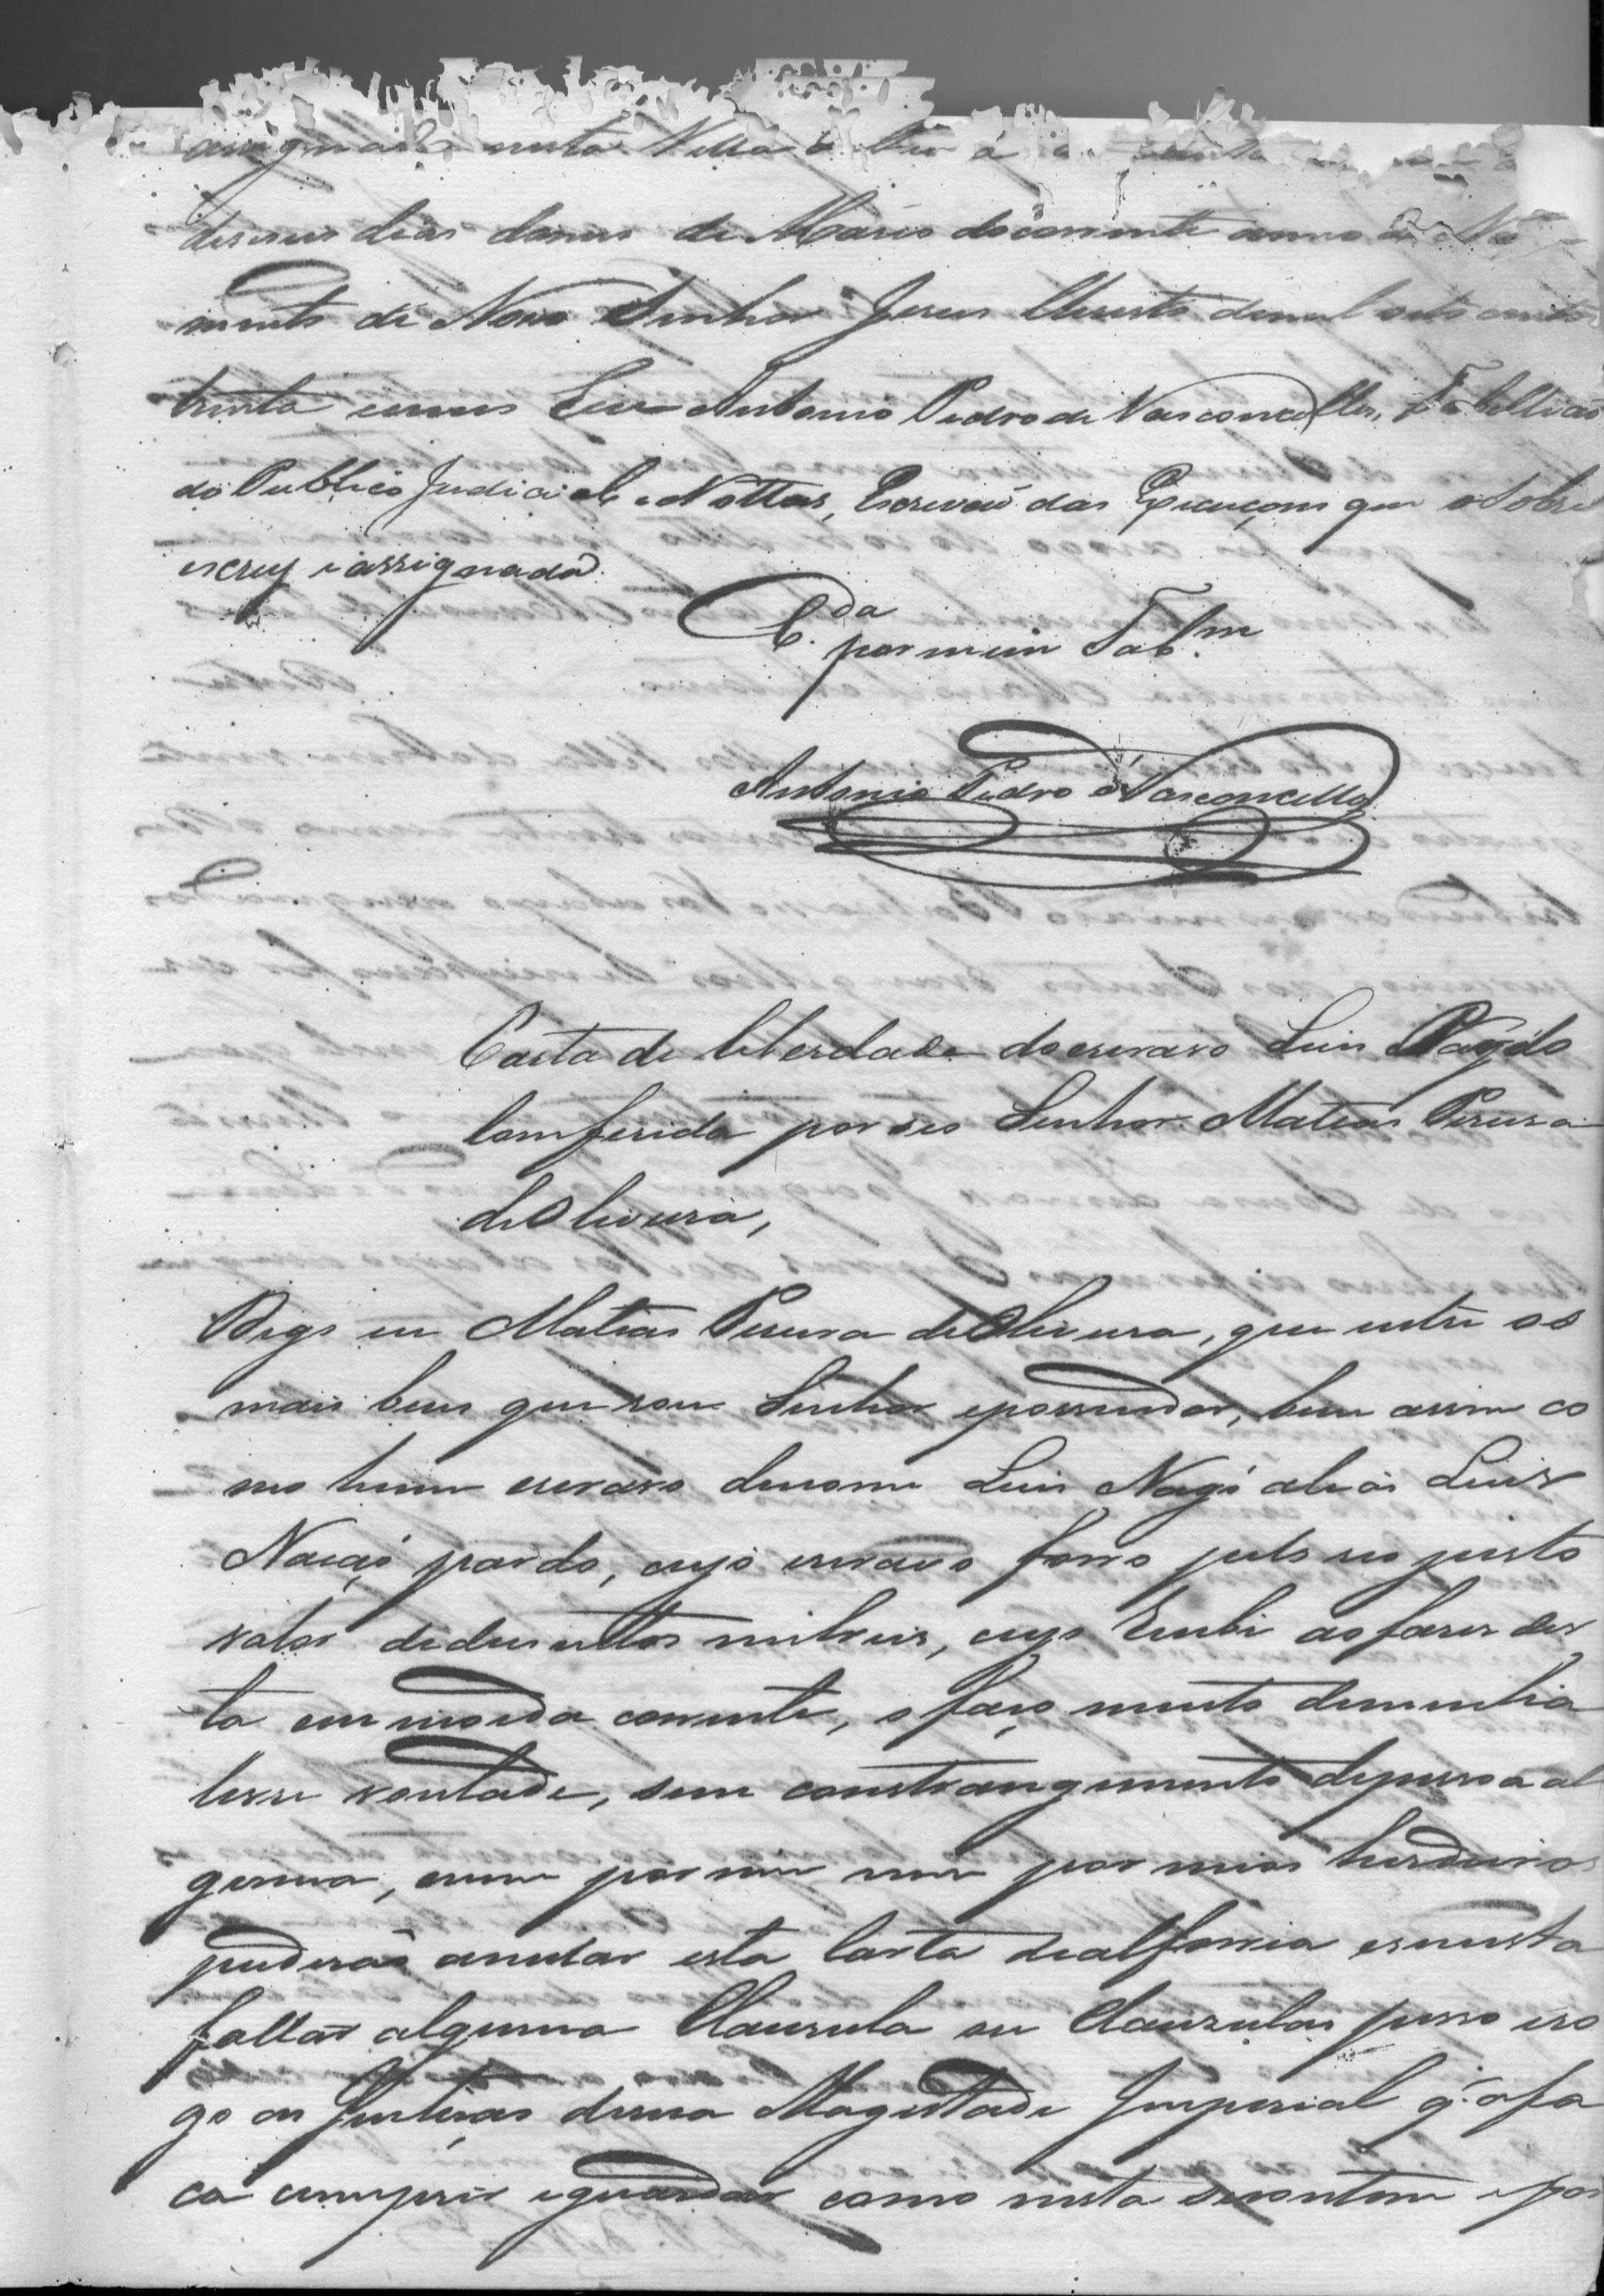 nesta Villa
deseseis dias domes de Março docorrente anno do Nas
mento de Noso Senhor Jesus Christo demil oito centos
trinta eseis Eu Antonio Pedro de Vasconcellos, Tabelliaõ
do Publico Judicial e Nottas, Escrivaõ das Execuçoens que o Sobre
escrey e assignada.
C.da por mim Tab.m
Antonio Pedro d'Vasconcellos
Carta de liberdade doescravo Luis Nagô do
Comferida por seo Senhor Matias Pereira
deOliveira,
Digo eu Matias Pereira deOliveira, que entre os
mais bens que sou Senhor epossuidor, bem assim co
mo hum escravo denome Luis Nagô alias Luis
Nação pardo, cujo escravo forro pelo seo justo
valor deduzentos milreis, cujo Recebi aofazer des
ta em moeda corrente, o faço muito deminha
livre vontade, sem constrangimento depessoa al
guma, enem por mim nem por meos herdeiros
puderaõ anular esta Carta dealforria esenesta
faltar alguma Clausula ou Clauzulas pesso ero
go as Justiças desua Magestade Imperial q. afa
ça cumprir eguardar como nesta secontem epor